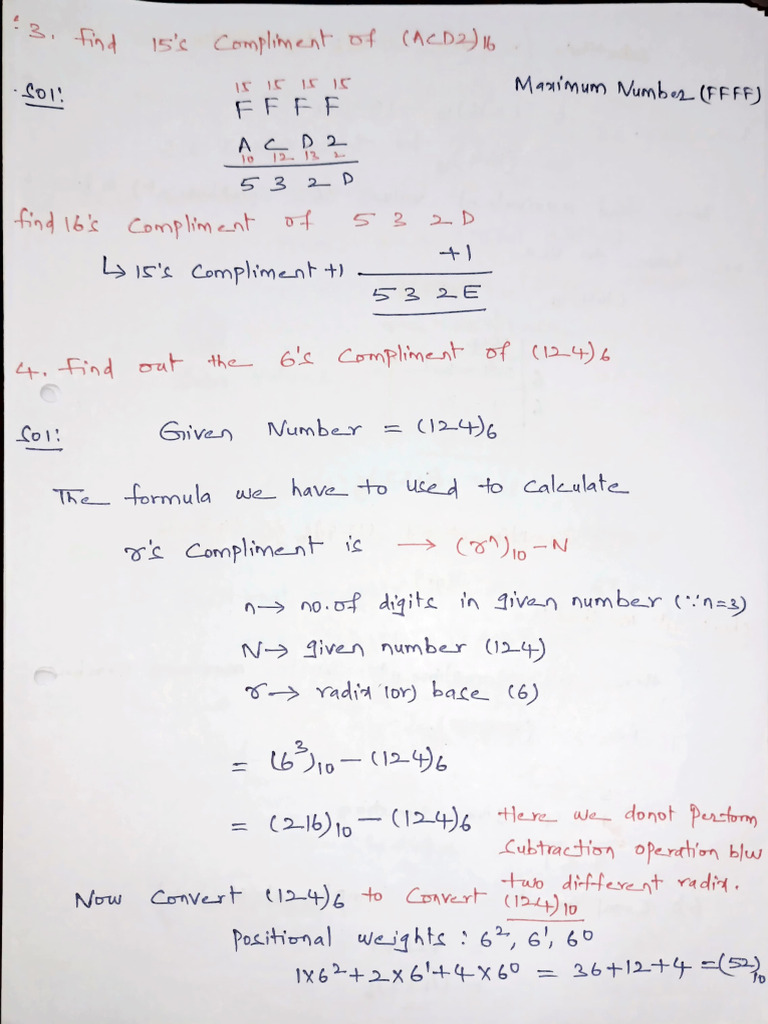 3. find 15's Compliment of (ACD2)16
Sol: 15 15 15 15 Maximum Number (FFFF)
F F F F
A C D 2
10 12 13 2
5 3 2 D
find 16's Compliment of 5 3 2 D
+1
↳ 15's Compliment +1
5 3 2 E
4. Find out the 6's Compliment of (124)6
Sol: Given Number = (124)6
The formula we have to used to calculate
r's Compliment is → (r^n)10 - N
n→ no. of digits in given number (∵n=3)
N→ given number (124)
r→ radix (or) base (6)
= (6³)10 - (124)6
= (216)10 - (124)6 Here we donot Perform
Subtraction operation b/w
two different radix.
Now Convert (124)6 to Convert (124)10
Positional weights : 6², 6¹, 6⁰
1×6²+2×6¹+4×6⁰ = 36+12+4 =(52)10